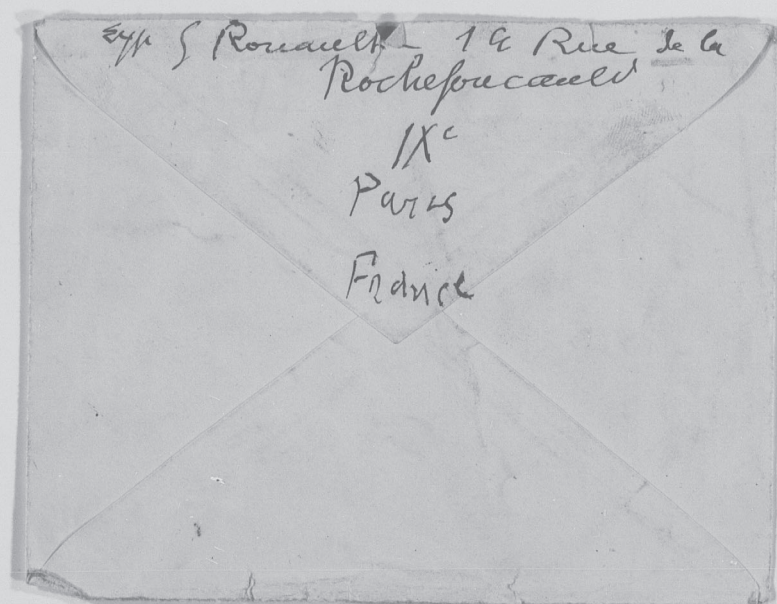 Exp G Rouault - 14 Rue de la
Rochefoucauld
IXe
Paris
France